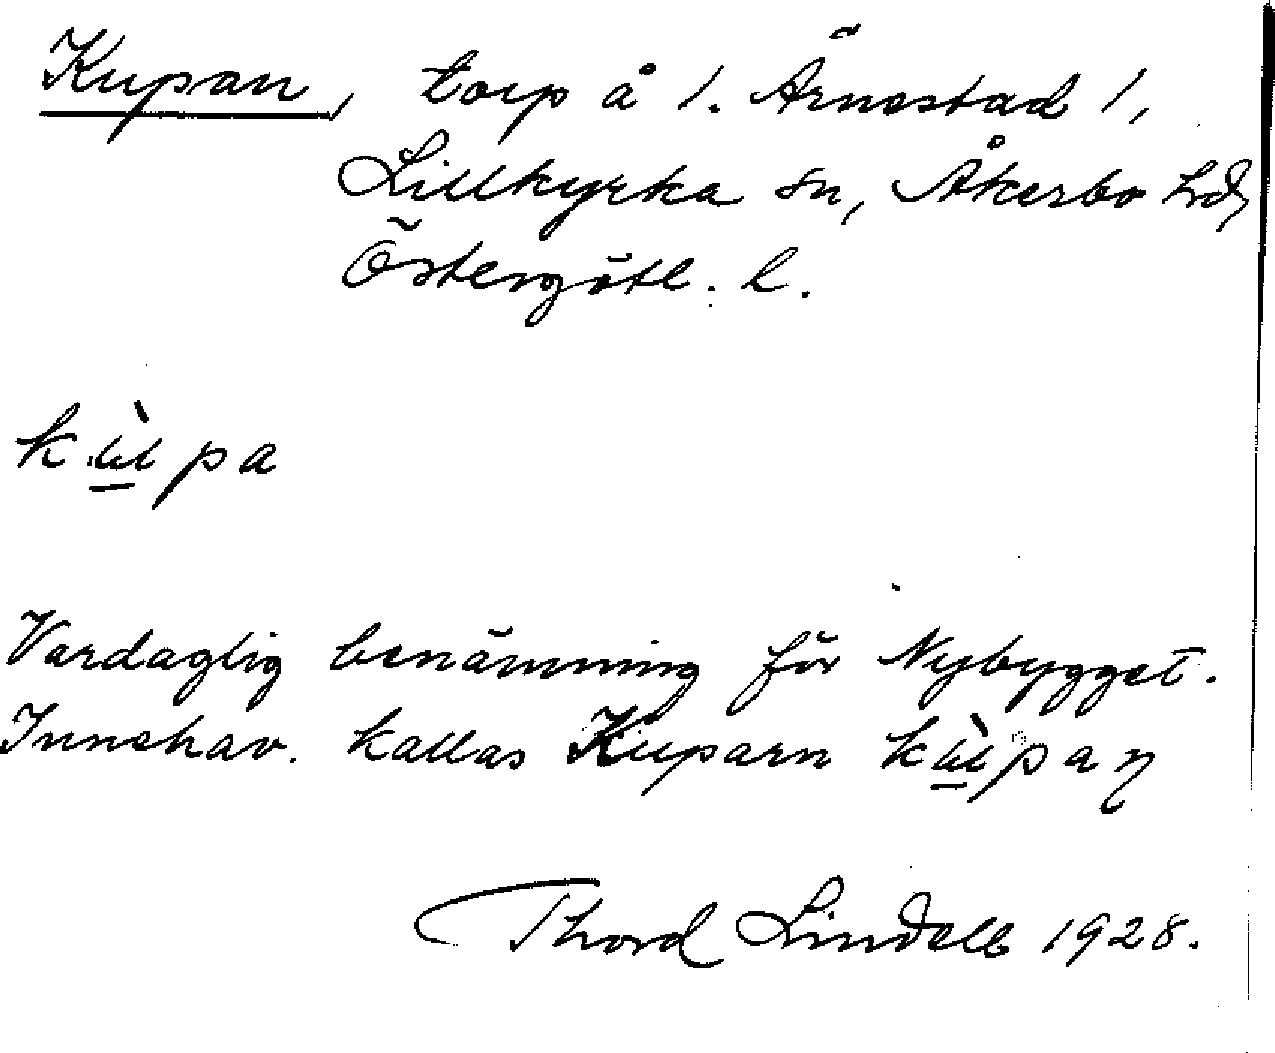 Kupan, torp å 1. Årnestad 1,
Lillkyrka sn, Åkerbo hd,
Östergötl. l.
kùpa
Vardaglig benämning för Nybygget.
Innehav. kallas Kuparn kùpaɳ
Thord Lindell 1928.